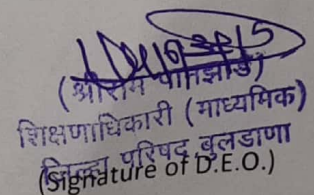 (श्रीराम पानझाडे)
शिक्षणाधिकारी (माध्यमिक)
जिल्हा परिषद, बुलडाणा
(Signature of D.E.O.)